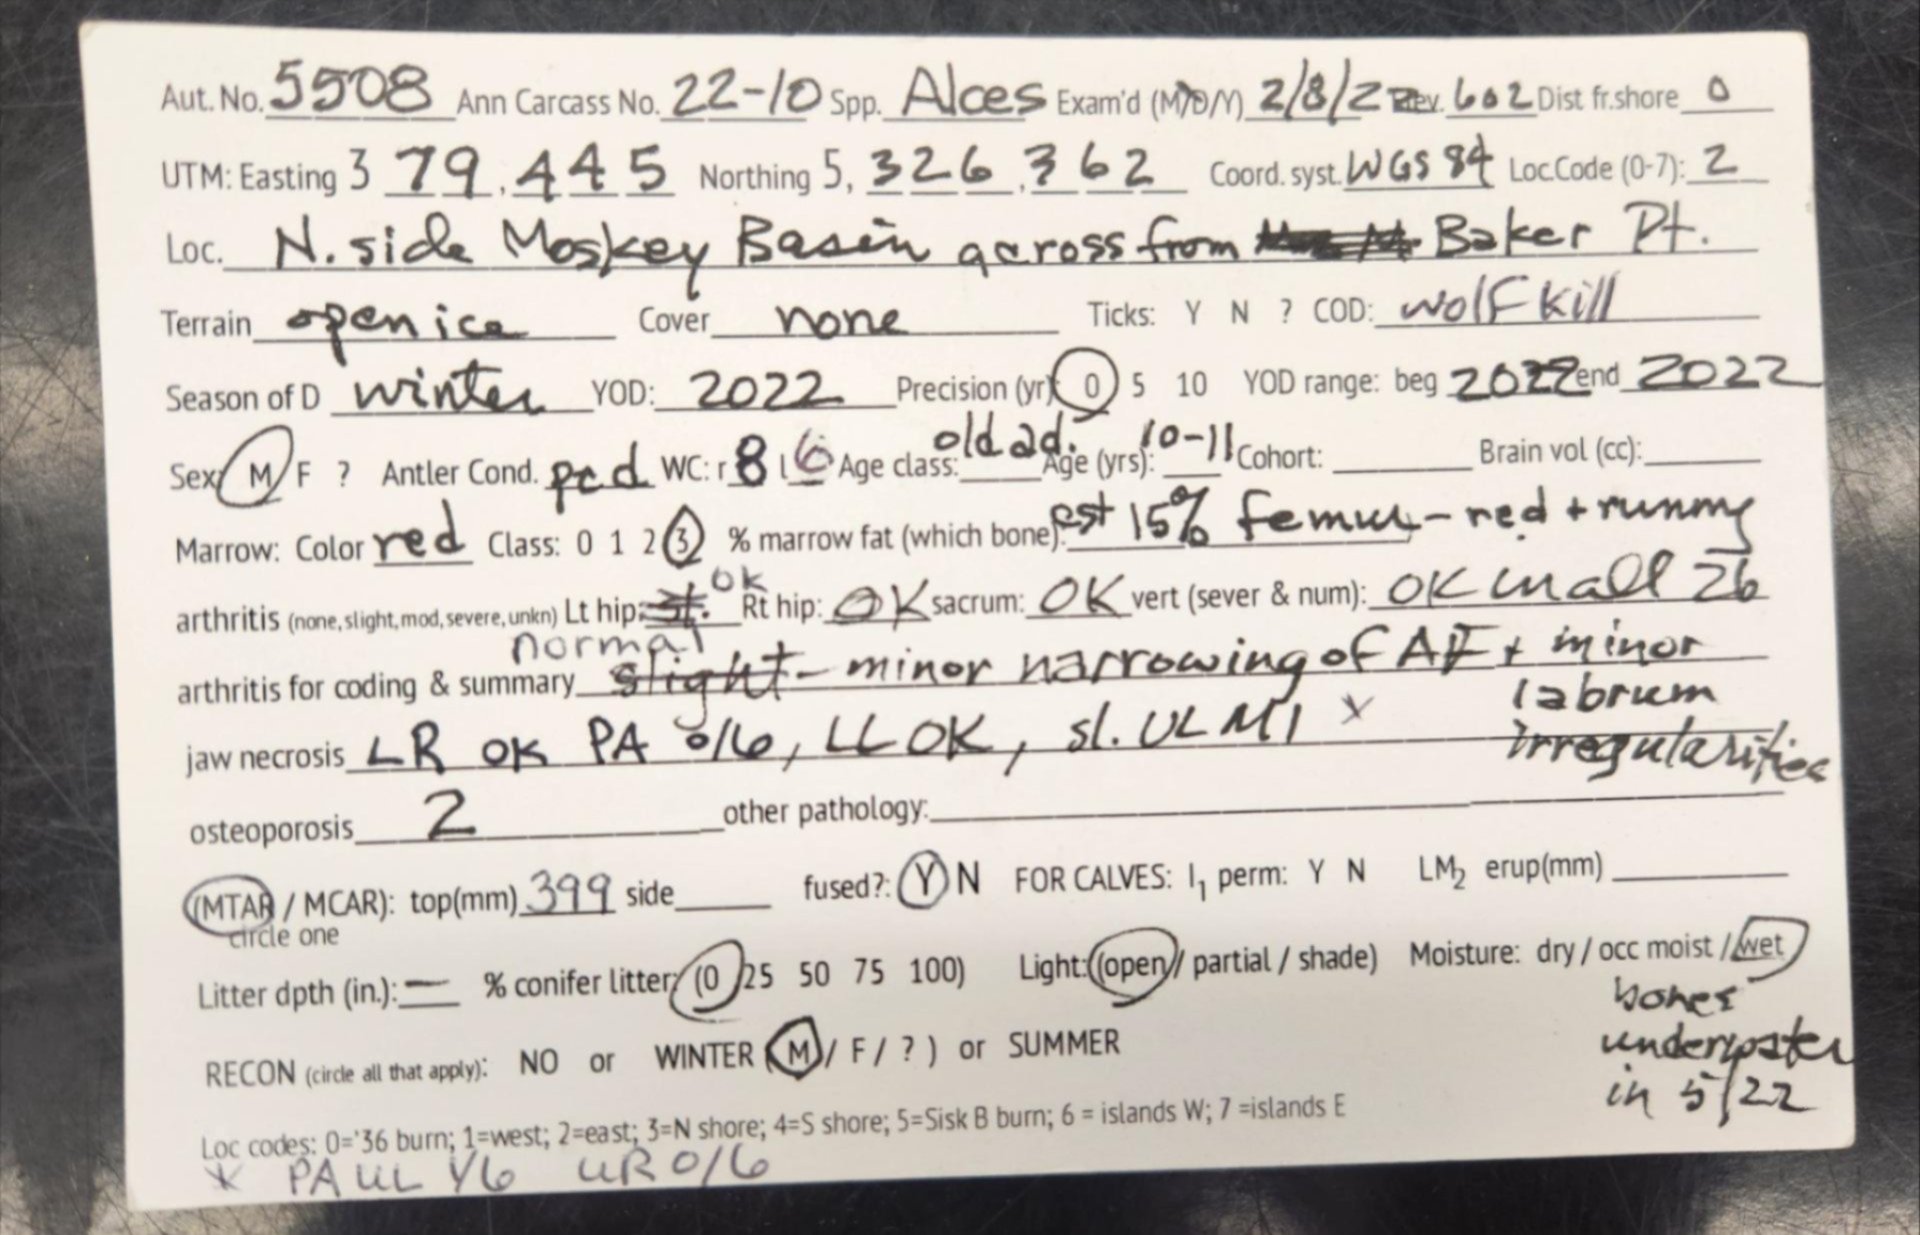 Aut. No. 5508 Ann Carcass No. 22-10 Spp. Alces Exam'd (M/D/Y) 2/8/22 Elev. 602 Dist fr.shore 0
UTM: Easting 3 79,445 Northing 5, 326,362 Coord. syst. WGS 84 Loc.Code (0-7): 2
Loc. N. side Moskey Basin across from Baker Pt.
Terrain open ice Cover none Ticks: Y N ? COD: wolf kill
Season of D winter YOD: 2022 Precision (yr) 0 5 10 YOD range: beg 2022 end 2022
Sex: M F ? Antler Cond. ped WC: r 8 l 6 Age class: old ad. Age (yrs): 10-11 Cohort: Brain vol (cc):
Marrow: Color red Class: 0 1 2 3 % marrow fat (which bone): est 15% femur - red + runny
arthritis (none, slight, mod, severe, unkn) Lt hip: st. ok Rt hip: OK sacrum: OK vert (sever & num): OK in all 26
normal
arthritis for coding & summary slight - minor narrowing of AF + minor
labrum
irregularities
jaw necrosis LR OK PA 0/6, LL OK, sl. UL M1 *
osteoporosis 2 other pathology:
(MTAR / MCAR): top(mm) 399 side fused?: Y N FOR CALVES: I1 perm: Y N LM2 erup(mm)
circle one
Litter dpth (in.): — % conifer litter: (0 25 50 75 100) Light: (open / partial / shade) Moisture: dry / occ moist / wet
bones
underwater
in 5/22
RECON (circle all that apply): NO or WINTER (M / F / ? ) or SUMMER
Loc codes: 0='36 burn; 1=west; 2=east; 3=N shore; 4=S shore; 5=Sisk B burn; 6 = islands W; 7 =islands E
* PA UL 1/6 UR 0/6